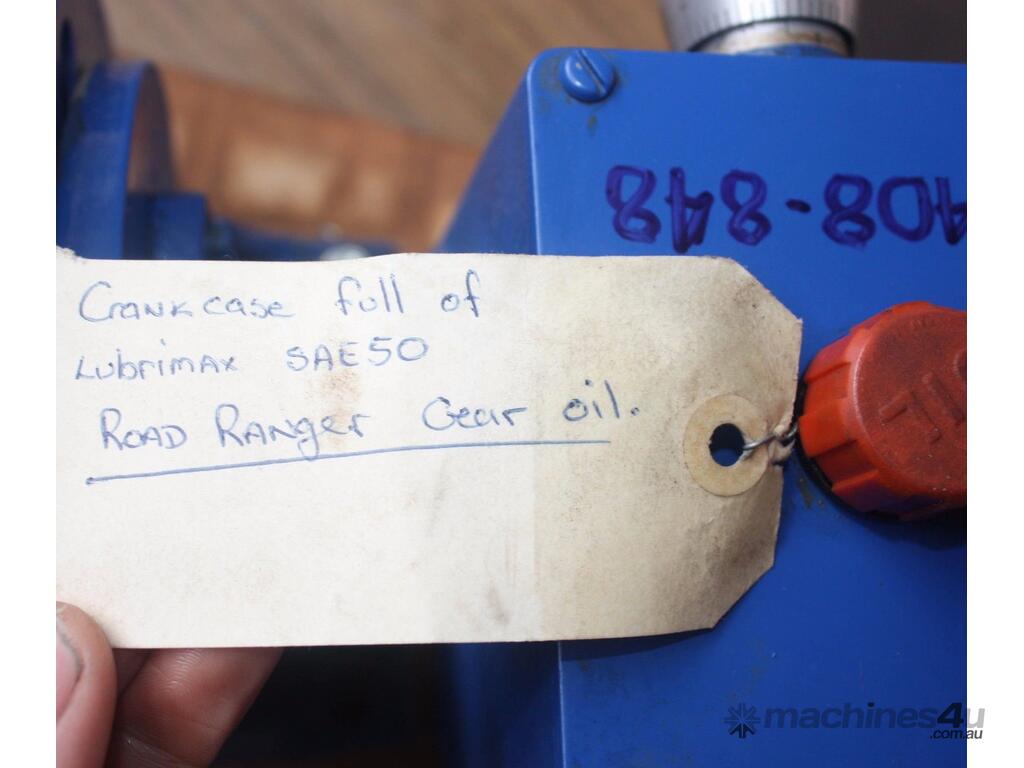 Crankcase full of
Lubrimax SAE50
ROAD RANGER Gear oil.
408-848
OIL
machines4u
.com.au